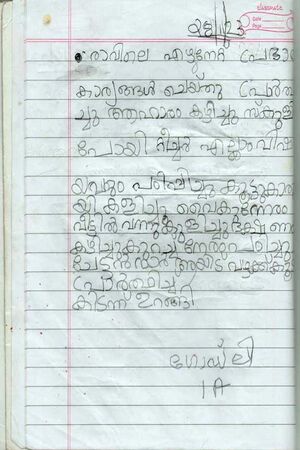 classmate
Date
Page
രാവിലെ എഴുന്നേറ്റ് പ്രഭാത
കാര്യങ്ങൾ ചെയ്തു പ്രാർത്ഥി
ച്ചു ആഹാരം കഴിച്ചു സ്കൂളി
പോയി ടീച്ചർ എല്ലാം വിഷ
യവും പഠിപ്പിച്ചു കൂട്ടുകാരു
യി കളിച്ചു വൈകുന്നേരം
വീട്ടിൽ വന്നു കുളിച്ചു ഭക്ഷണം
കഴിച്ചു കുറച്ചു നേരം പഠിച്ചു
പ്രാർത്ഥിച്ചു
കിടന്ന് ഉറങ്ങി
ഗോഡ്ലി
1 A